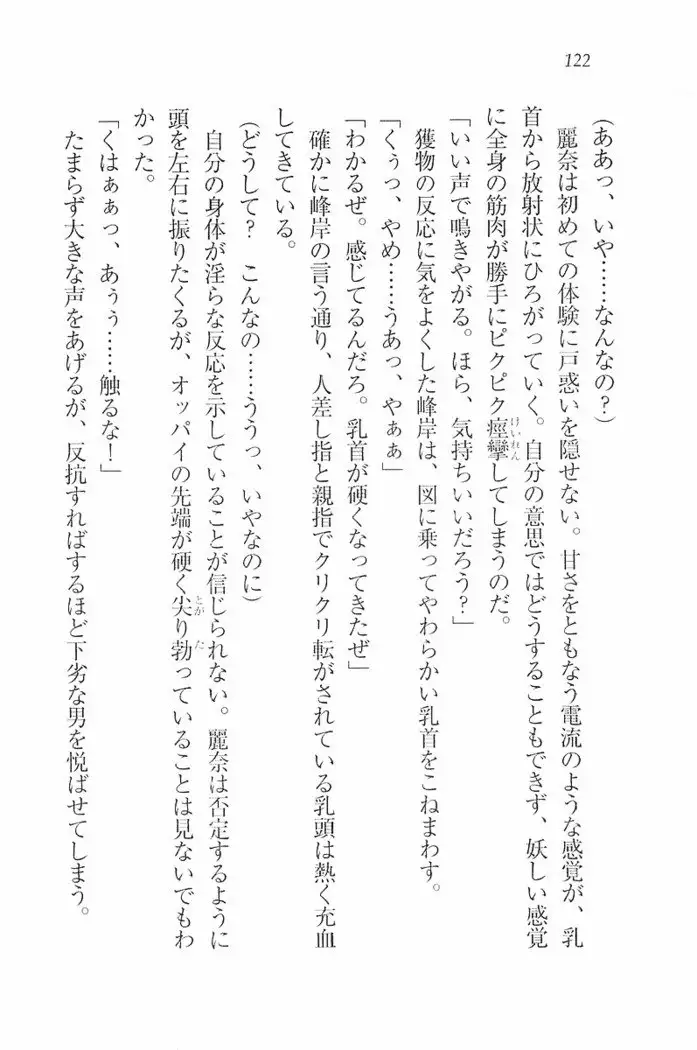 122
(ああっ、いや……なんなの?)
麗奈は初めての体験に戸惑いを隠せない。甘さをともなう電流のような感覚が、乳
首から放射状にひろがっていく。自分の意思ではどうすることもできず、妖しい感覚
けいれん
に全身の筋肉が勝手にピクピク痙攣してしまうのだ。
「いい声で鳴きやがる。ほら、気持ちいいだろう?」
獲物の反応に気をよくした峰岸は、図に乗ってやわらかい乳首をこねまわす。
「くぅっ、やめ……うあっ、やぁぁ」
「わかるぜ。感じてるんだろ。乳首が硬くなってきたぜ」
確かに峰岸の言う通り、人差し指と親指でクリクリ転がされている乳頭は熱く充血
してきている。
(どうして? こんなの……ううっ、いやなのに)
自分の身体が淫らな反応を示していることが信じられない。麗奈は否定するように
とが た
頭を左右に振りたくるが、オッパイの先端が硬く尖り勃っていることは見ないでもわ
かった。
「くはぁぁっ、あぅぅ……触るな!」
たまらず大きな声をあげるが、反抗すればするほど下劣な男を悦ばせてしまう。